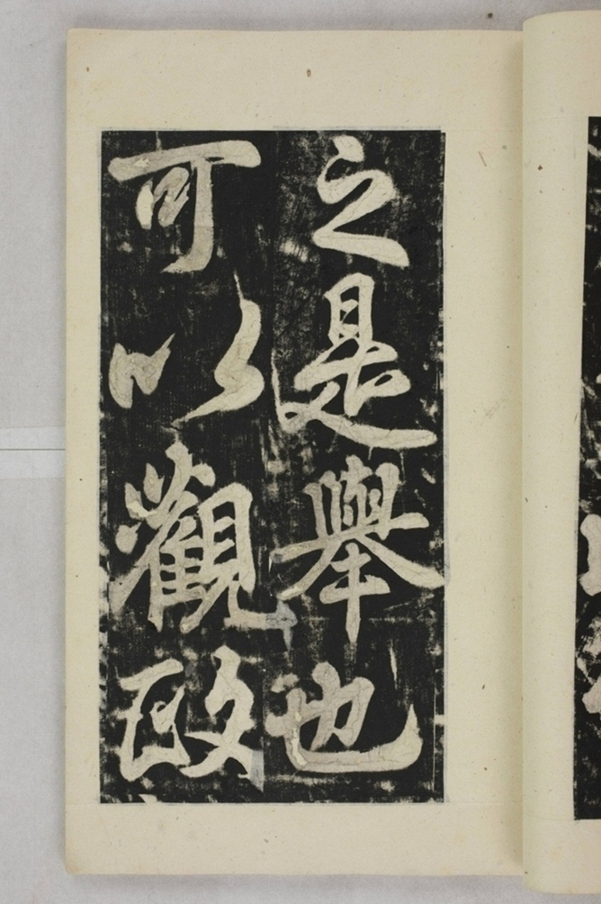 之是舉也
可以觀政